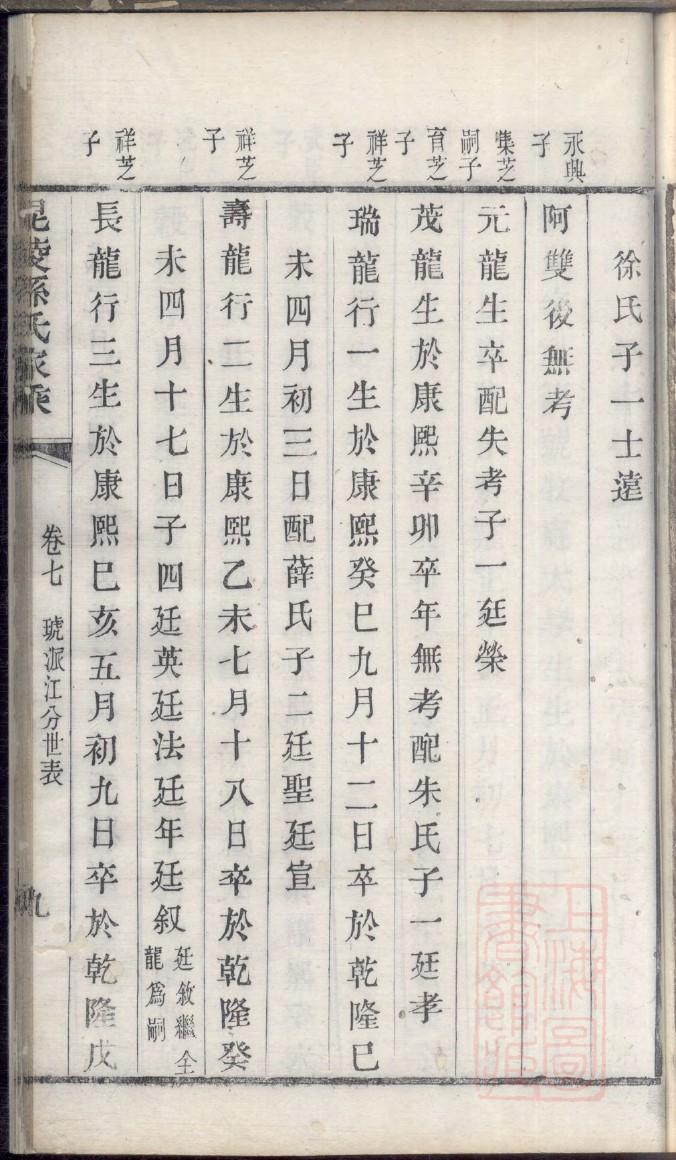 徐氏子一士遠
永興子
阿雙後無考
集芝嗣子
元龍生卒配失考子一廷榮
育芝子
茂龍生於康熙辛卯卒年無考配朱氏子一廷孝
祥芝子
瑞龍行一生於康熙癸巳九月十二日卒於乾隆巳
未四月初三日配薛氏子二廷聖廷宣
祥芝子
壽龍行二生於康熙乙未七月十八日卒於乾隆癸
未四月十七日子四廷英廷法廷年廷叙廷敘繼全龍爲嗣
祥芝子
長龍行三生於康熙巳亥五月初九日卒於乾隆戊
毘陵孫氏家乘
卷七 琥派江分世表
九
上海圖書館藏